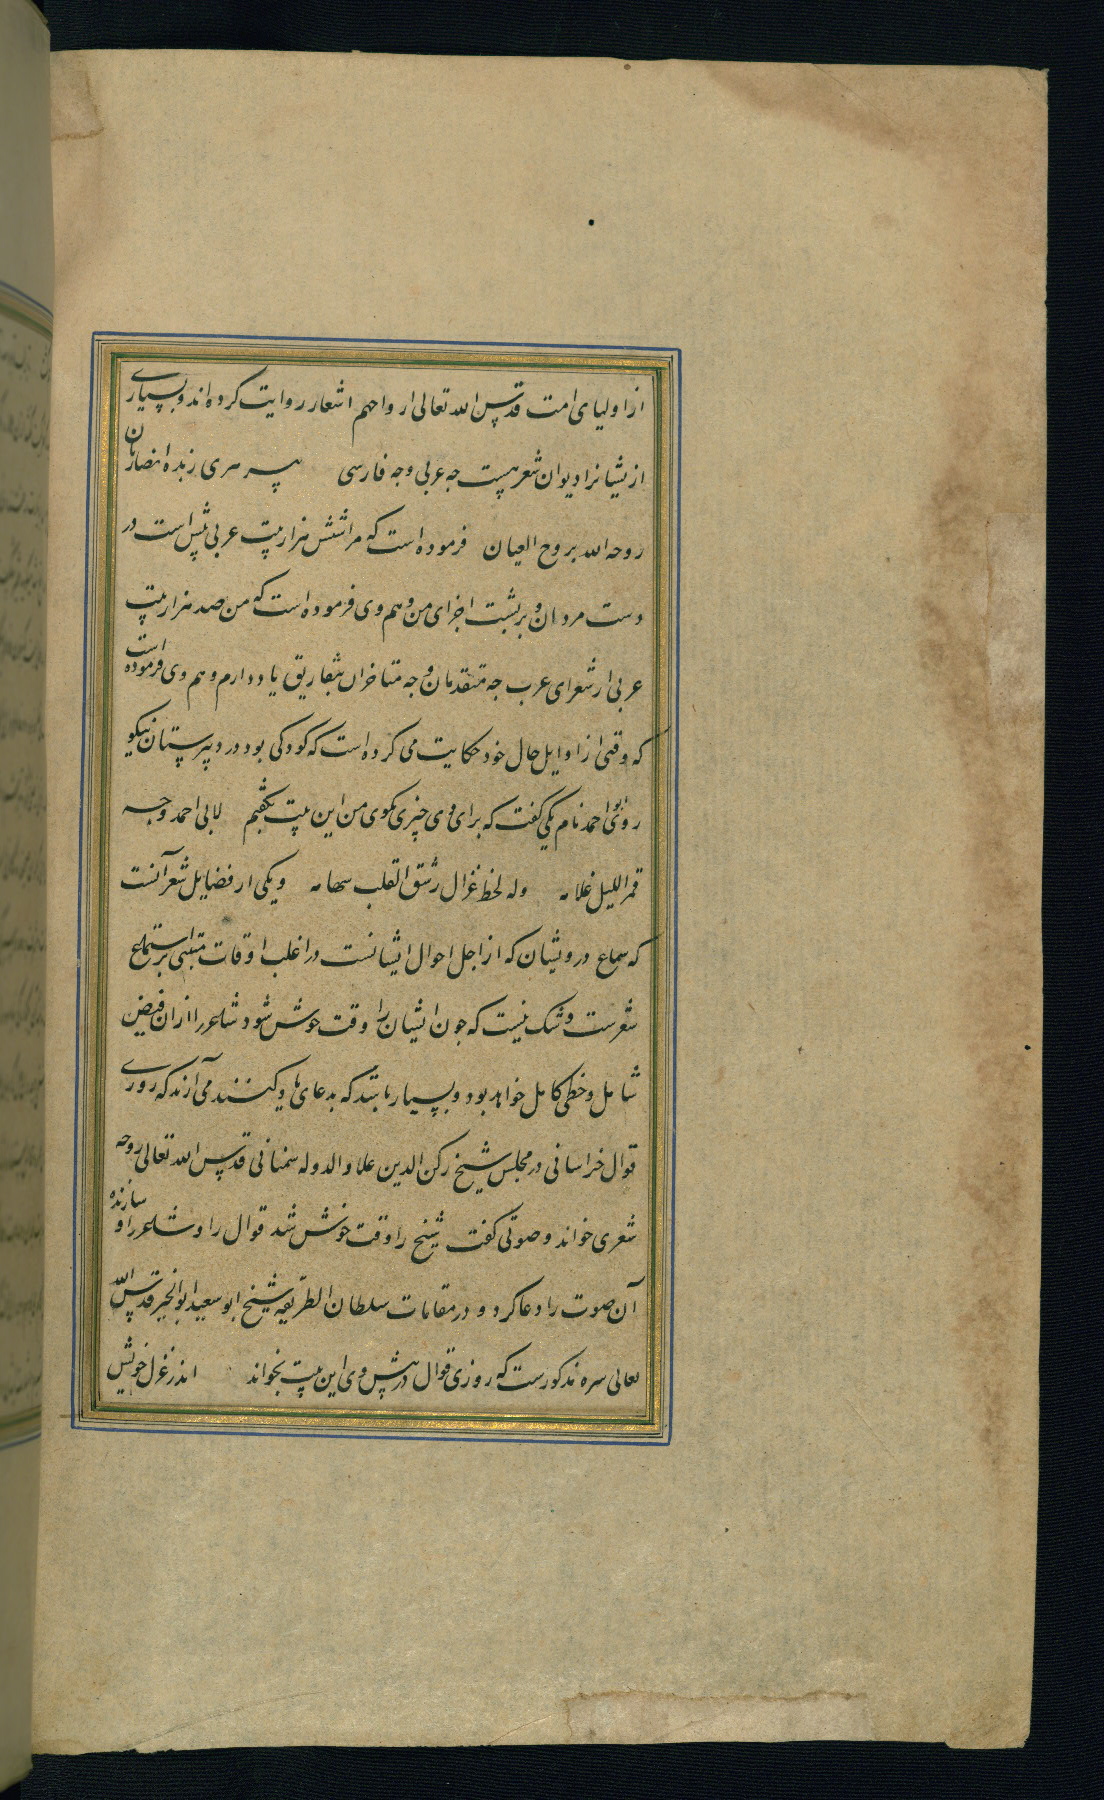 از اولیای امت قدس الله تعالی ارواحهم اشعار روایت کرده اند و بسیاری
از یشانرا دیوان شعر هست جه عربی وجه فارسی پیر هری زبده انصاریان
روحه الله بروح العیان فرموده است که مرا شش هزار بیت عربی بیش است در
دست مردان و بر پشت اجزای من و هم وی فرموده است که من صد هزار بیت
عربی از شعرای عرب جه متقدمان و جه متاخران بتفاریق یاد دارم و هم وی فرموده است
که وقتی از اوایل حال خود حکایت می کرده است که کودکی بود در دبیرستان نیکو
روی ابو احمد نام یکی گفت که برای وی چیزی بکوی من این بیت بگفتم لابی احمد وجه
قمر اللیل غلامه وله لحظ غزال رشق القلب سهامه و یکی از فضایل شعر آنست
که سماع درویشان که از اجل احوال ایشانست در اغلب اوقات مبتنی بر استماع
شعرست و شک نیست که جون ایشان را وقت خوش شود شاعر را ازان فیض
شامل و حظی کامل خواهد بود و بسیار باشد که بدعای یاد کنند می آرند که روزی
قوال خراسانی در مجلس شیخ رکن الدین علاو الدوله سمنانی قدس الله تعالی روحه
شعری خواند و صوتی گفت شیخ را وقت خوش شد قوال را و شاعر را و سازنده
آن صوت را دعا کرد و در مقامات سلطان الطریقه شیخ ابو سعید ابو الخیر قدس الله
تعالی سره مذکورست که روزی قوال در پیش وی این بیت بخواند اندر غزل خویش